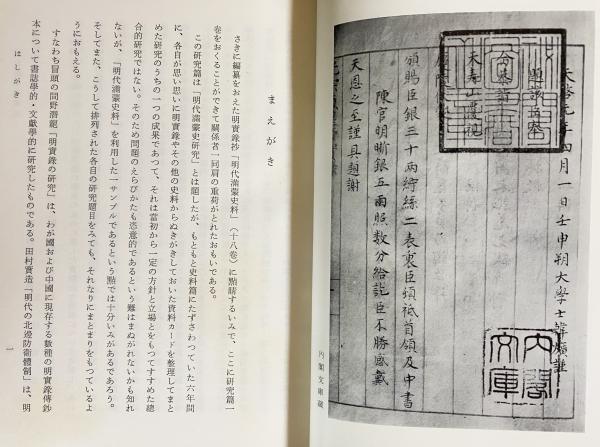 天啓元年四月一日壬申朔大學士韓爌謹
題議兵奉
頒賜臣銀三十兩紵絲二表裏臣頓祗首領及中書
陳官明晰銀五兩照數分給訖臣不勝感戴
天恩之至謹具題謝
内閣文庫
内閣文庫蔵
まえがき
さきに編纂をおえた明實録抄「明代滿蒙史料」(十八巻)に點睛するいみで、ここに研究篇一
巻をおくることができて關係者一同肩の重荷がとれたおもいである。
この研究篇は「明代滿蒙史研究」とは題したが、もともと史料篇にたずさわつていた六年間
に、各自が思い思いに明實録やその他の史料からぬきがきしておいた資料カードを整理してまと
めた研究のうちの一つの成果であつて、それは當初から一定の方針と立場とをもつてすすめた總
合的研究ではない。そのため問題のえらびかたも恣意的であるという難はまぬがれないかも知れ
ないが、「明代滿蒙史料」を利用した一サンプルであるという點では十分いみがあるであろう。
そしてまた、こうして排列された各自の研究題目をみても、それなりにまとまりをもつているよ
うにおもえる。
すなわち冒頭の間野潛龍「明實録の研究」は、わが國および中國に現存する數種の明實録傳鈔
本について書誌學的・文獻學的に研究したものである。田村實造「明代の北邊防衞體制」は、明
はしがき
一